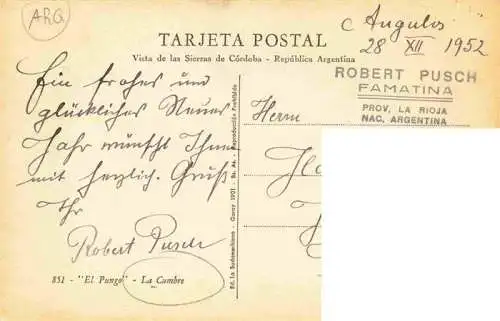 ARG
C Angulos
28 XII 1952
TARJETA POSTAL
Vista de las Sierras de Córdoba - República Argentina
ROBERT PUSCH
FAMATINA
PROV. LA RIOJA
NAC. ARGENTINA
Ein frohes und
glückliches Neues
Jahr wünscht Ihnen
mit herzlich. Gruß
Ihr
Robert Pusch
Herrn
851 - "El Pungo" - La Cumbre
- Garay 1901 - Bs. As. - Reproducción Prohibida